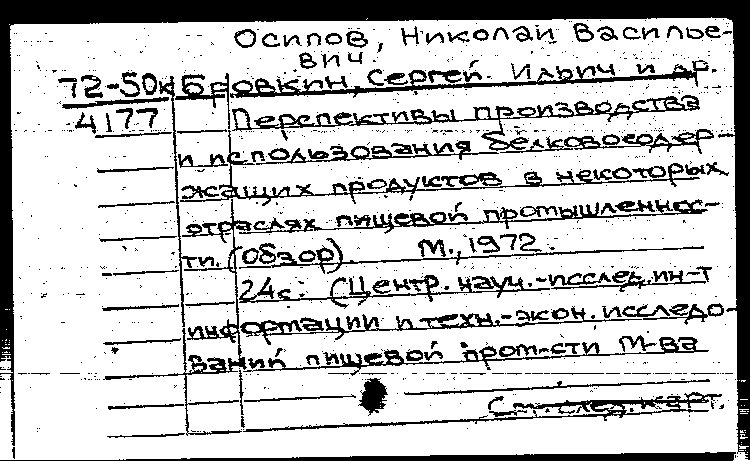 Осипов, Николай Василье-
вич.
72-50к Бровкин, Сергей Ильич и др.
4177 Перспективы производства
и использования белковосодер-
жащих продуктов в некоторых
отраслях пищевой промышленнос-
ти. (Обзор). М., 1972.
24с. (Центр. науч.-исслед. ин-т
информации и техн.-экон. исследо-
ваний пищевой пром-сти М-ва
См. след. карт.